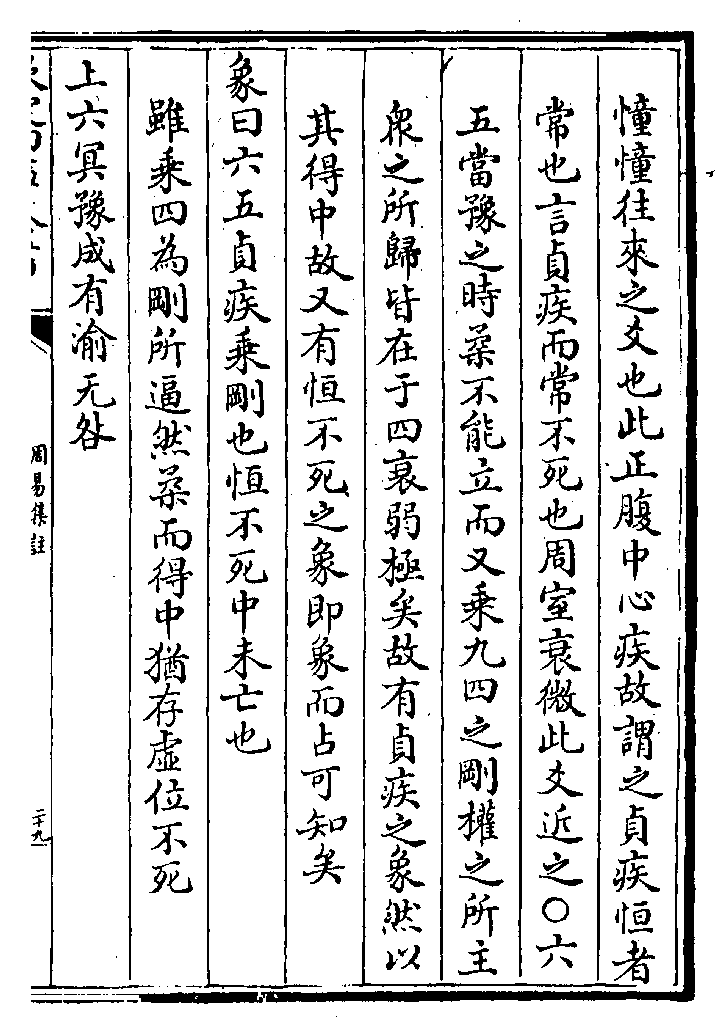 憧憧往來之爻也此正腹中心疾故謂之貞疾恒者
常也言貞疾而常不死也周室衰微此爻近之○六
五當豫之時柔不能立而又乗九四之剛權之所主
衆之所歸皆在于四衰弱極矣故有貞疾之象然以
其得中故又有恒不死之象即象而占可知矣
象曰六五貞疾乗剛也恒不死中未亡也
雖乗四為剛所逼然柔而得中猶存虛位不死
上六冥豫成有渝无咎
周易集註
二十九